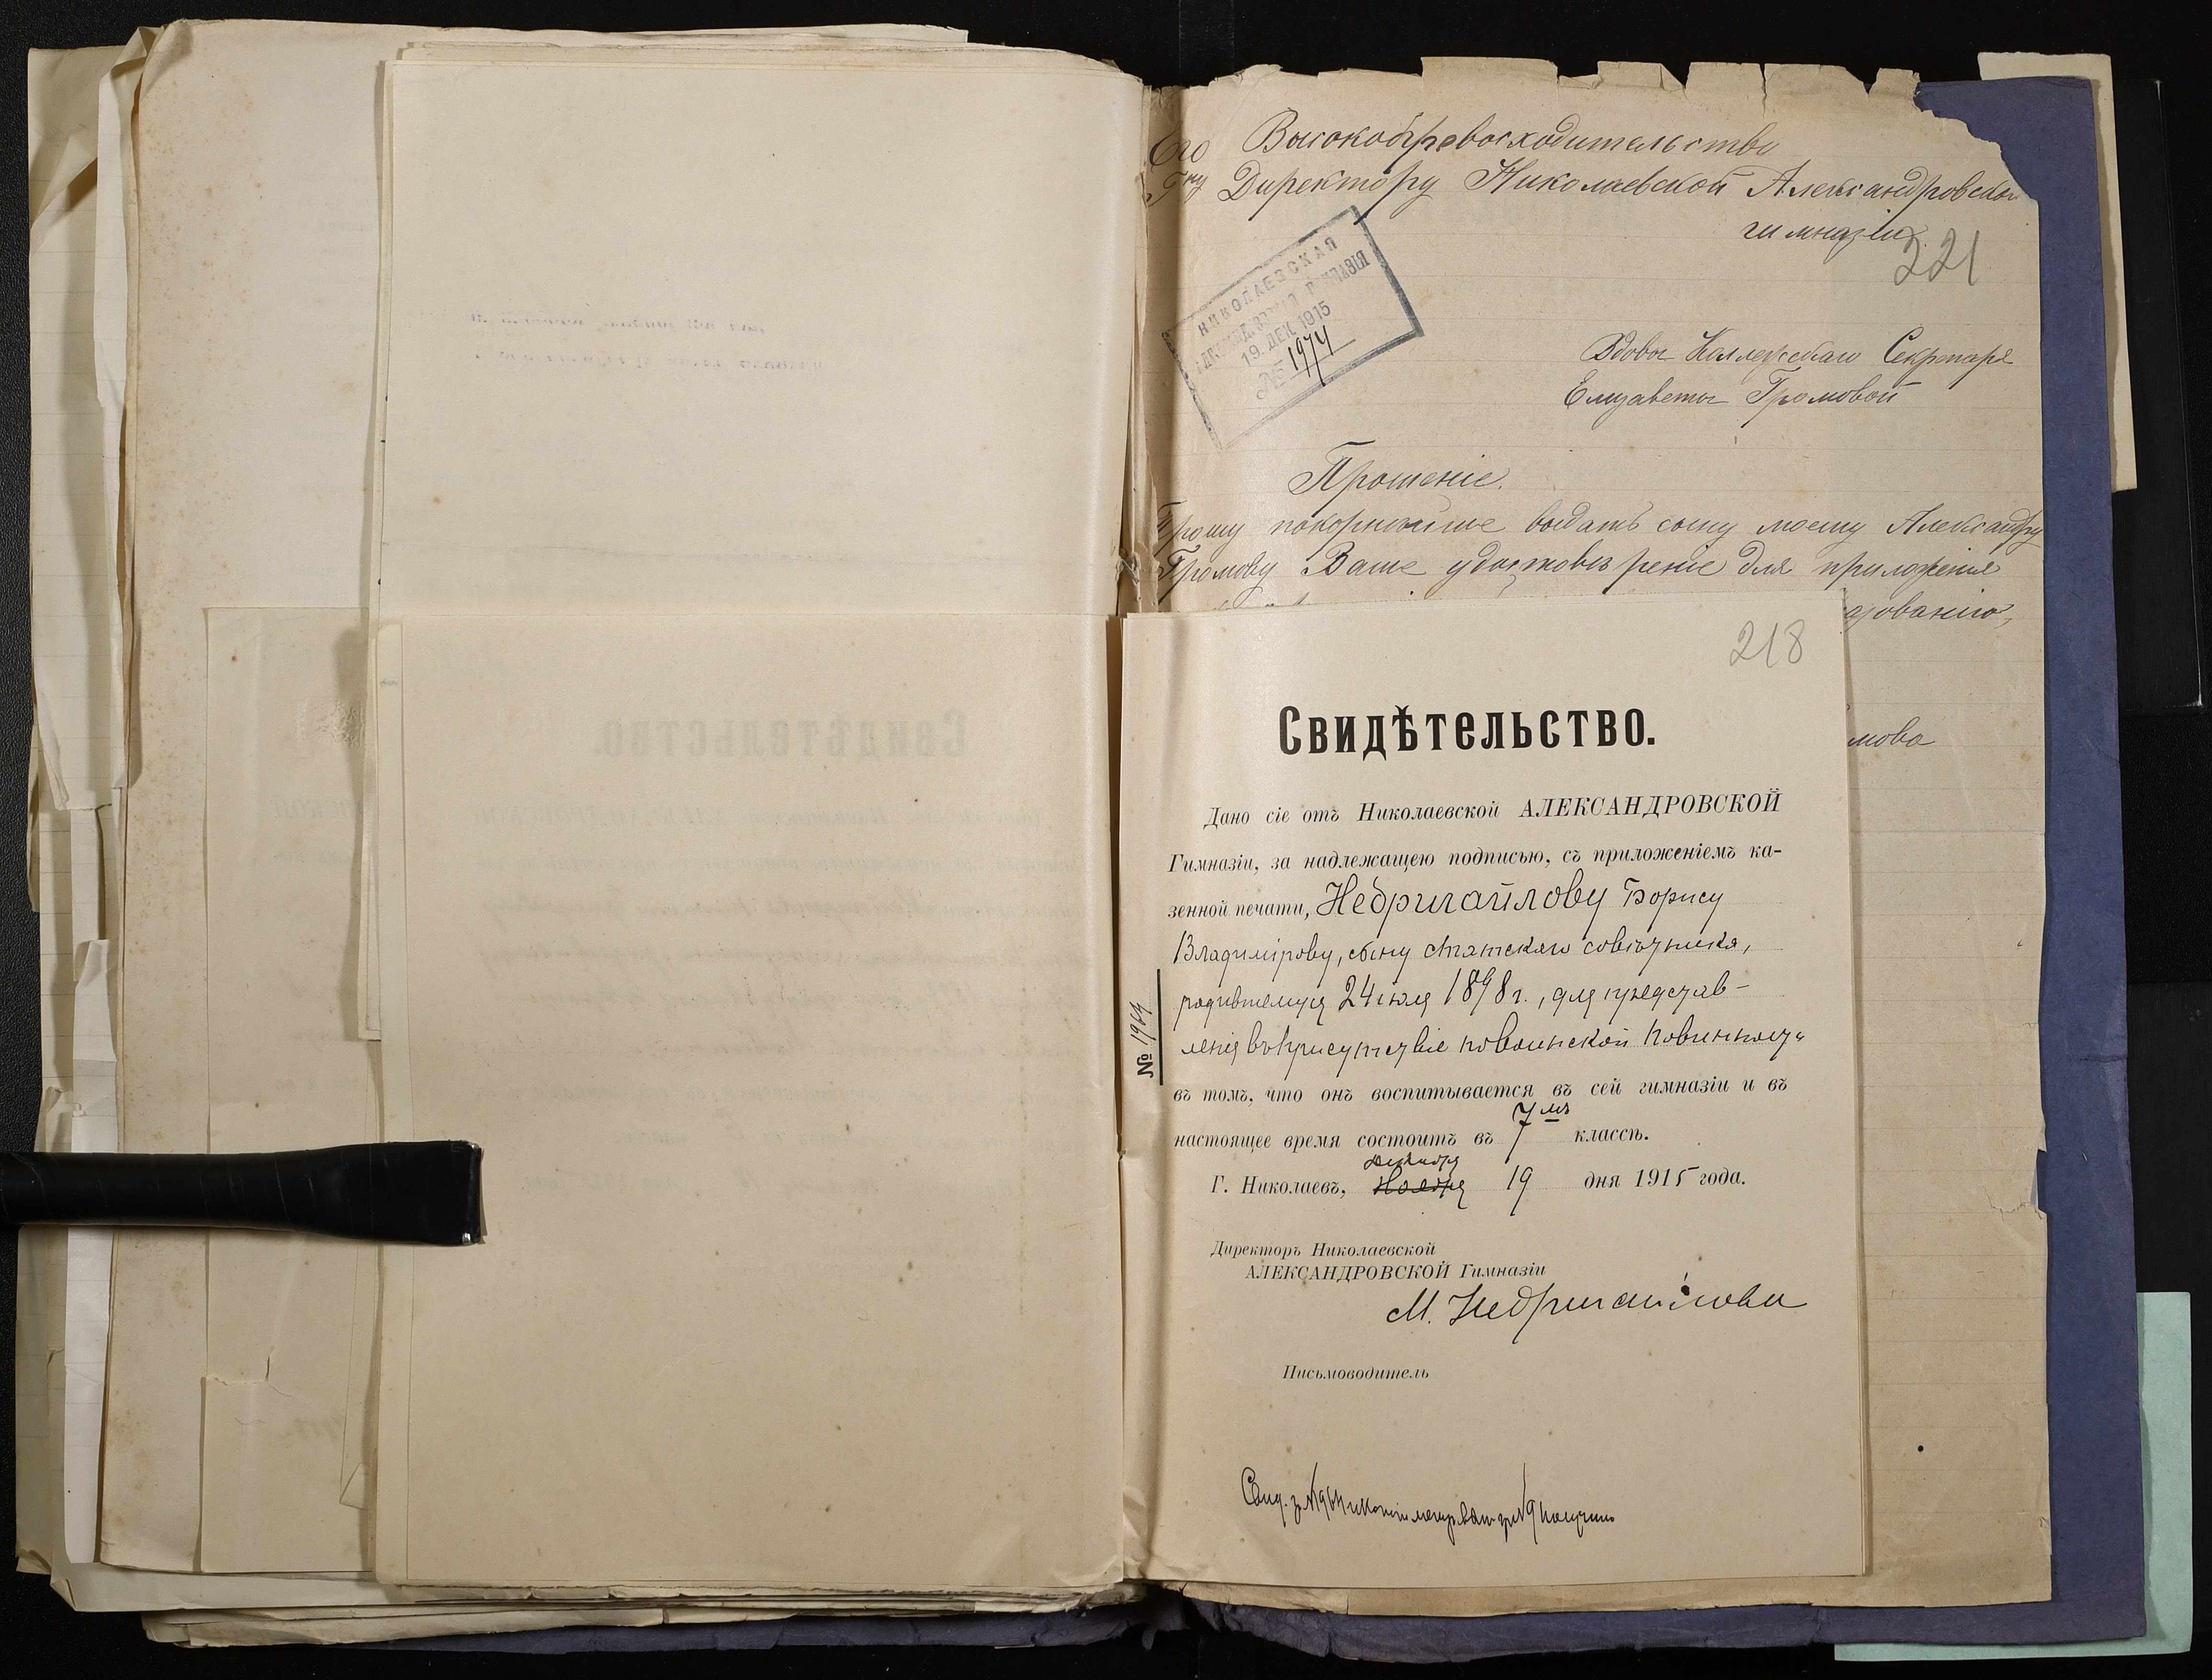 Его Высокопревосходительство
Гну Директору Николаевской Александровской
гимназіи.
221
НИКОЛАЕВСКАЯ
АЛЕКСАНДРОВСКАЯ ГИМНАЗІЯ
19. ДЕК. 1915
№ 1974
Вдовы Коллежскаго Секретаря
Елизаветы Громовой
Прошеніе.
Прошу покорнѣйше выдать сыну моему Александру
Громову Ваше удостовѣреніе для приложенія
азованію,
мова
218
Свидѣтельство.
Дано сіе отъ Николаевской АЛЕКСАНДРОВСКОЙ
Гимназіи, за надлежащею подписью, съ приложеніемъ ка-
зенной печати, Недригайлову Борису
Владимірову, сыну статскаго совѣтника,
родившемуся 24 іюля 1898 г., для представ-
ленія въ присутствіе по воинской повинности
№ 1964
въ томъ, что онъ воспитывается въ сей гимназіи и въ
настоящее время состоитъ въ 7мъ классѣ.
Декабря
Г. Николаевъ, Ноября 19 дня 1915 года.
Директоръ Николаевской
АЛЕКСАНДРОВСКОЙ Гимназіи
М. Недригайловъ
Письмоводитель
Свид. за №1964 и копію метр. за №9 получилъ